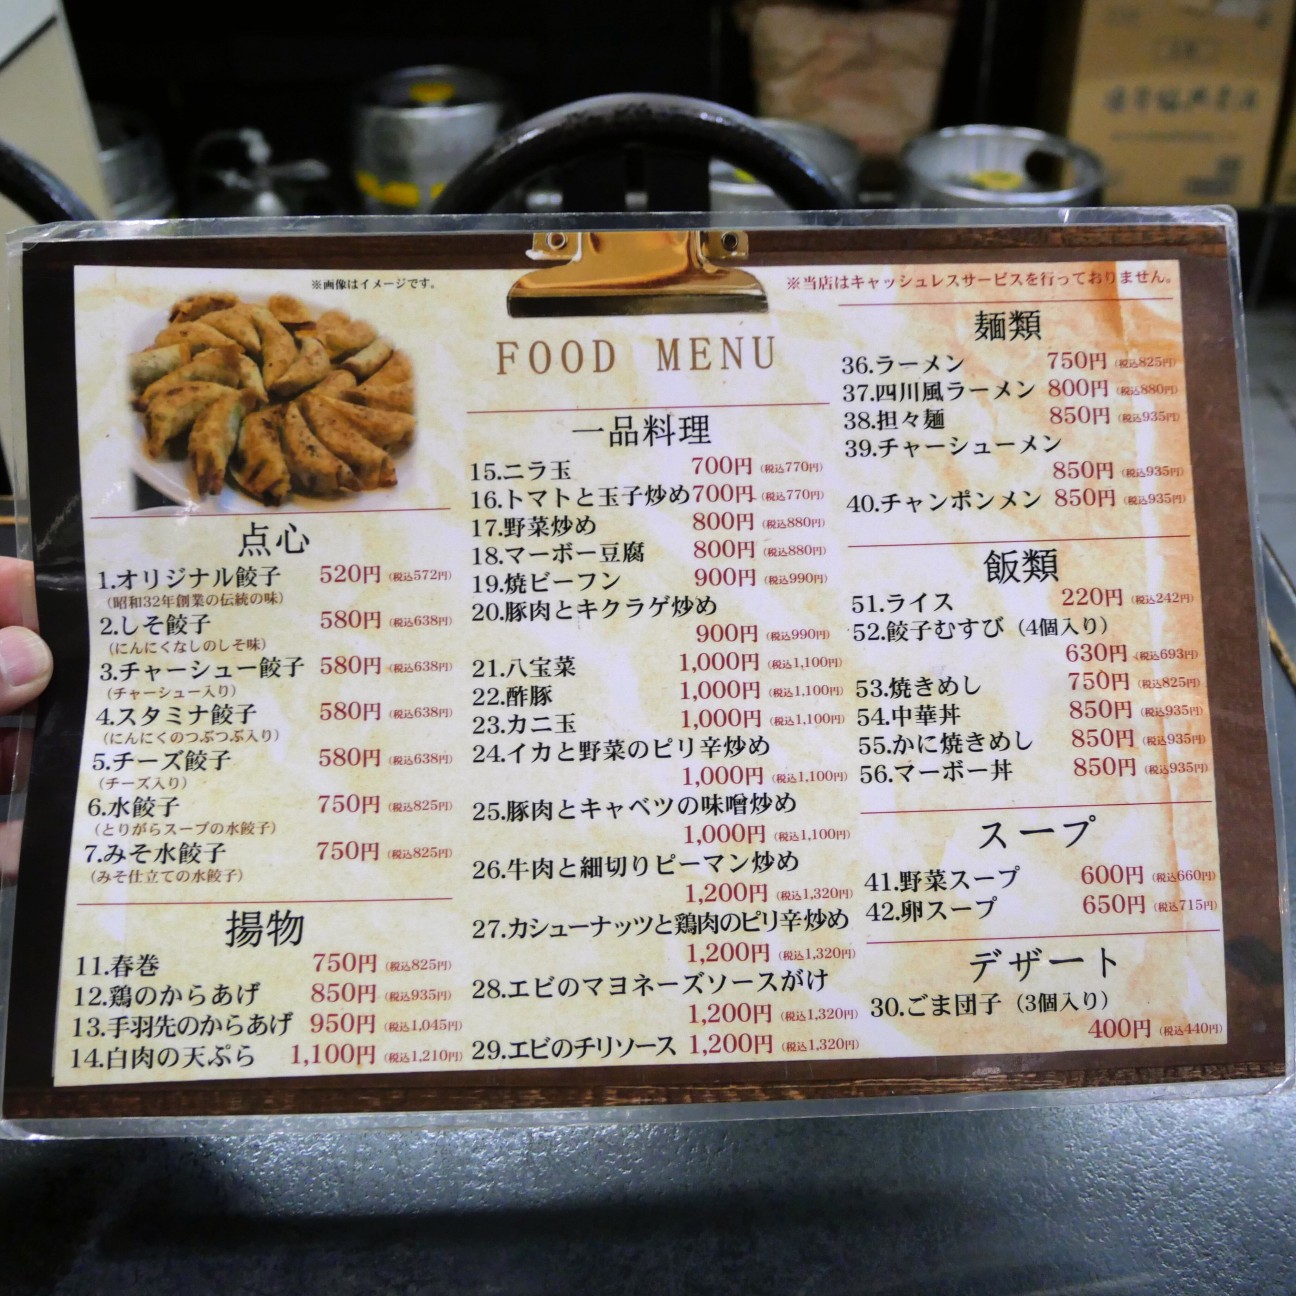 ※画像はイメージです。
※当店はキャッシュレスサービスを行っておりません。
FOOD MENU
点心
1.オリジナル餃子 520円(税込572円)
(昭和32年創業の伝統の味)
2.しそ餃子 580円(税込638円)
(にんにくなしのしそ味)
3.チャーシュー餃子 580円(税込638円)
(チャーシュー入り)
4.スタミナ餃子 580円(税込638円)
(にんにくのつぶつぶ入り)
5.チーズ餃子 580円(税込638円)
(チーズ入り)
6.水餃子 750円(税込825円)
(とりがらスープの水餃子)
7.みそ水餃子 750円(税込825円)
(みそ仕立ての水餃子)
揚物
11.春巻 750円(税込825円)
12.鶏のからあげ 850円(税込935円)
13.手羽先のからあげ 950円(税込1,045円)
14.白肉の天ぷら 1,100円(税込1,210円)
一品料理
15.ニラ玉 700円(税込770円)
16.トマトと玉子炒め 700円(税込770円)
17.野菜炒め 800円(税込880円)
18.マーボー豆腐 800円(税込880円)
19.焼ビーフン 900円(税込990円)
20.豚肉とキクラゲ炒め
900円(税込990円)
21.八宝菜 1,000円(税込1,100円)
22.酢豚 1,000円(税込1,100円)
23.カニ玉 1,000円(税込1,100円)
24.イカと野菜のピリ辛炒め
1,000円(税込1,100円)
25.豚肉とキャベツの味噌炒め
1,000円(税込1,100円)
26.牛肉と細切りピーマン炒め
1,200円(税込1,320円)
27.カシューナッツと鶏肉のピリ辛炒め
1,200円(税込1,320円)
28.エビのマヨネーズソースがけ
1,200円(税込1,320円)
29.エビのチリソース 1,200円(税込1,320円)
麺類
36.ラーメン 750円(税込825円)
37.四川風ラーメン 800円(税込880円)
38.担々麺 850円(税込935円)
39.チャーシューメン
850円(税込935円)
40.チャンポンメン 850円(税込935円)
飯類
51.ライス 220円(税込242円)
52.餃子むすび(4個入り)
630円(税込693円)
53.焼きめし 750円(税込825円)
54.中華丼 850円(税込935円)
55.かに焼きめし 850円(税込935円)
56.マーボー丼 850円(税込935円)
スープ
41.野菜スープ 600円(税込660円)
42.卵スープ 650円(税込715円)
デザート
30.ごま団子(3個入り)
400円(税込440円)